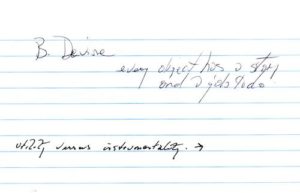 B. Devine
every object has a story
and a job to do
utility versus instrumentality. →